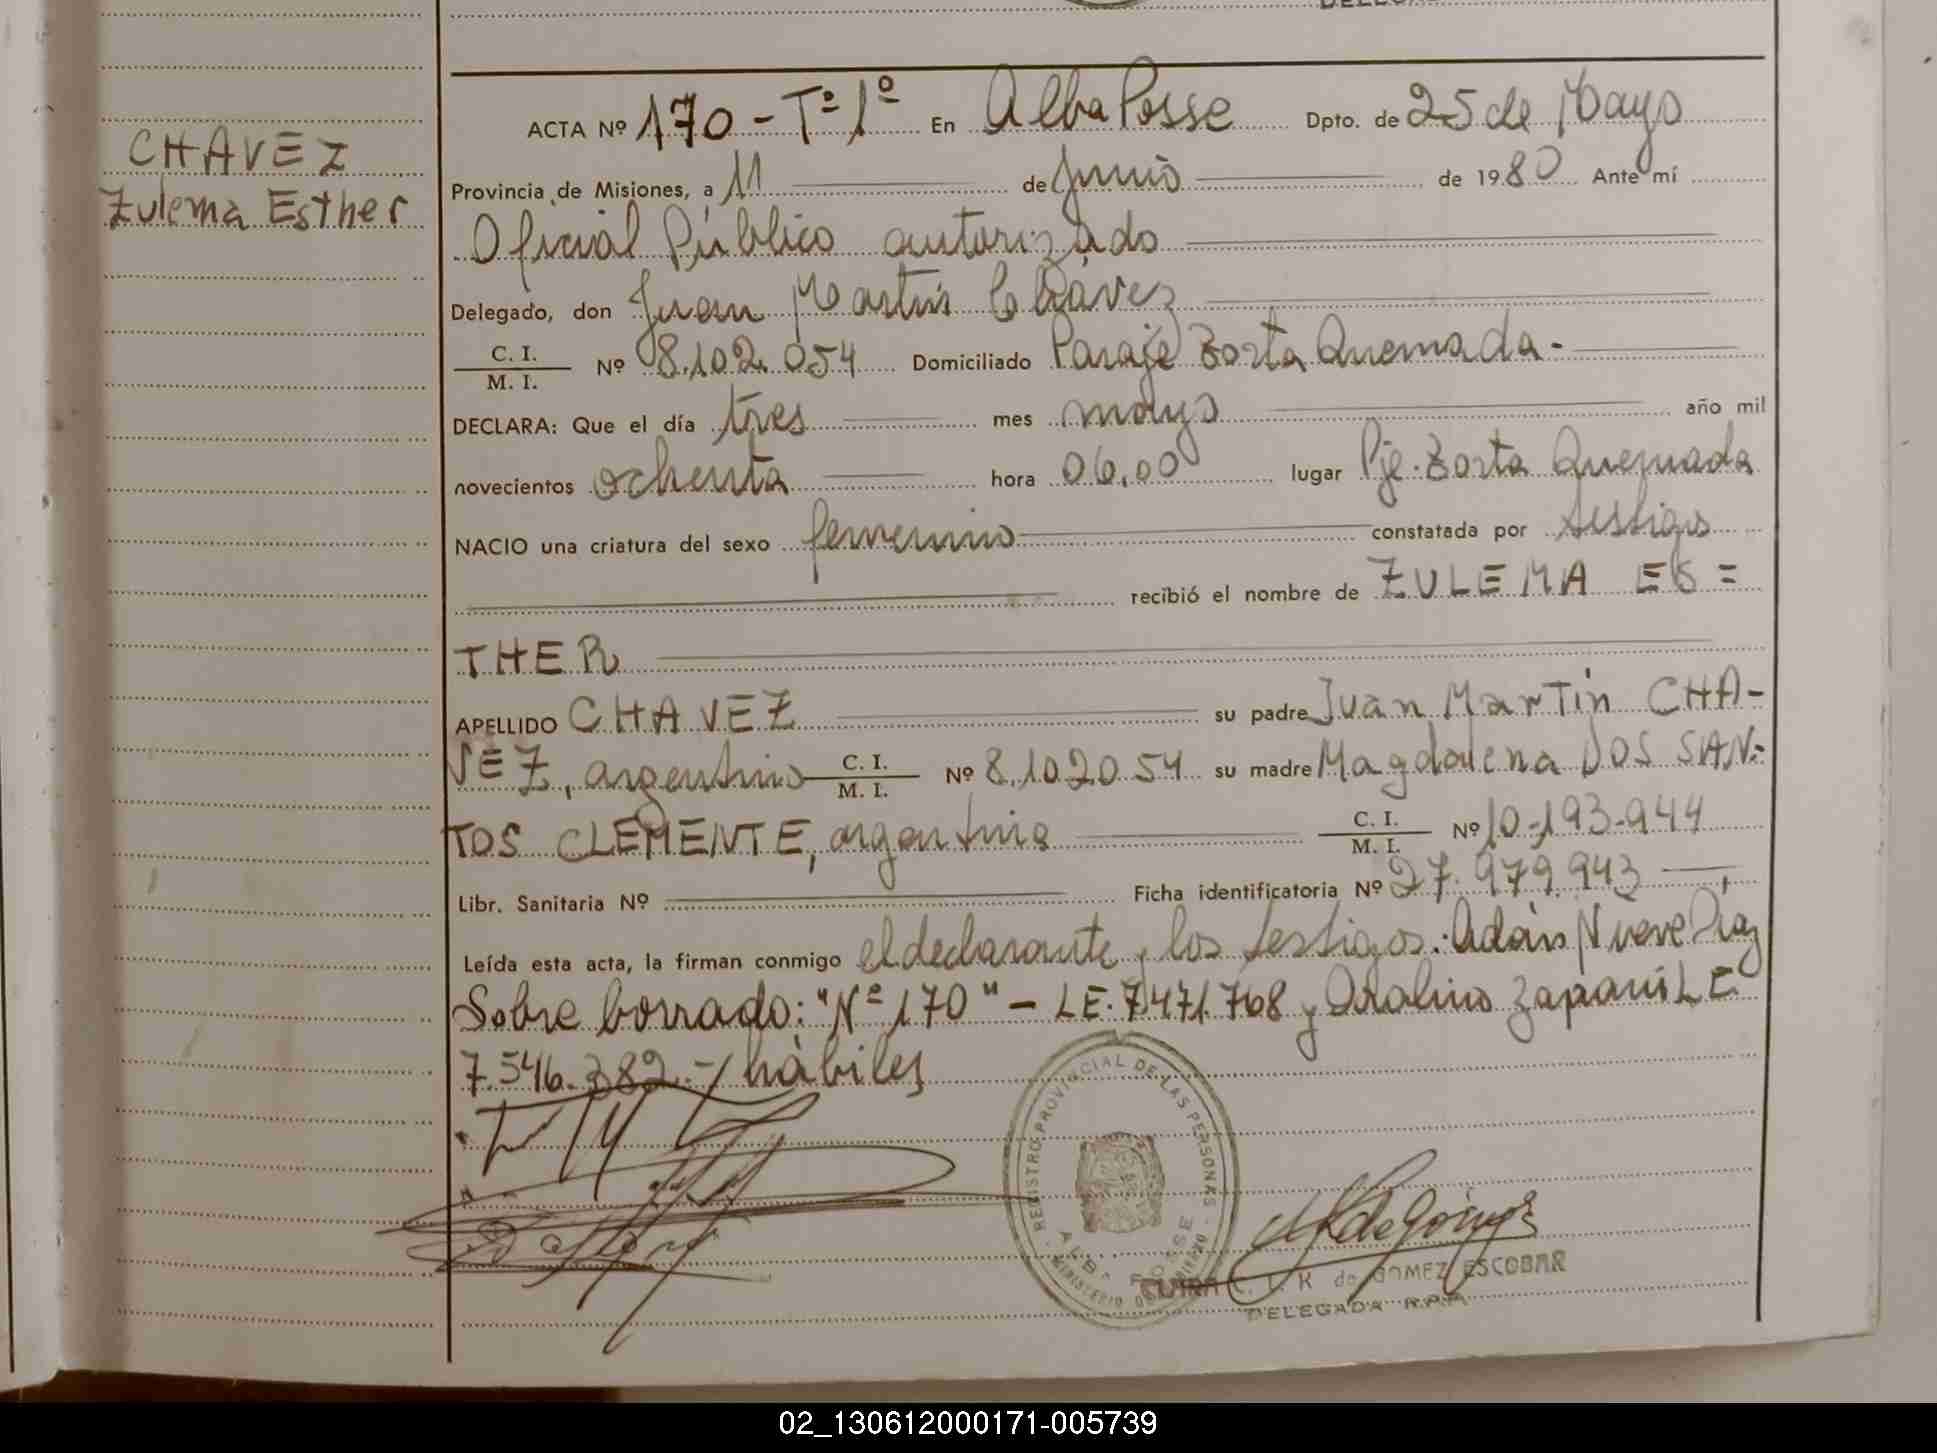 CHAVEZ
Zulema Esther
ACTA Nº 170 - Tº 1º En Alba Posse Dpto. de 25 de Mayo
Provincia de Misiones, a 11 de Junio de 1980 Ante mí
Oficial Público autorizado
Delegado, don Juan Martin Chávez
C. I.
M. I. Nº 8.102.054 Domiciliado Paraje Zorta Quemada.-
DECLARA: Que el día tres mes mayo año mil
novecientos ochenta hora 06,00 lugar Pje. Zorta Quemada
NACIO una criatura del sexo femenino constatada por testigos
recibió el nombre de ZULEMA ES=
THER
APELLIDO CHAVEZ su padre Juan Martin CHA-
VEZ, argentino C. I. M. I. Nº 8.102.054 su madre Magdalena DOS SAN-
TOS CLEMENTE, argentina C. I. M. I. Nº 10-193-944
Libr. Sanitaria Nº Ficha identificatoria Nº 27.979.943
Leída esta acta, la firman conmigo el declarante y los testigos: Adán Nuve Díaz
Sobre borrado: "Nº 170" - LE. 7.471.768 y Oralino Zapani LE
7.546.382.-/ hábiles
REGISTRO PROVINCIAL DE LAS PERSONAS
ALBA POSSE
MINISTERIO DE GOBIERNO
de GOMEZ ESCOBAR
DELEGADA R.P.P.
02_130612000171-005739